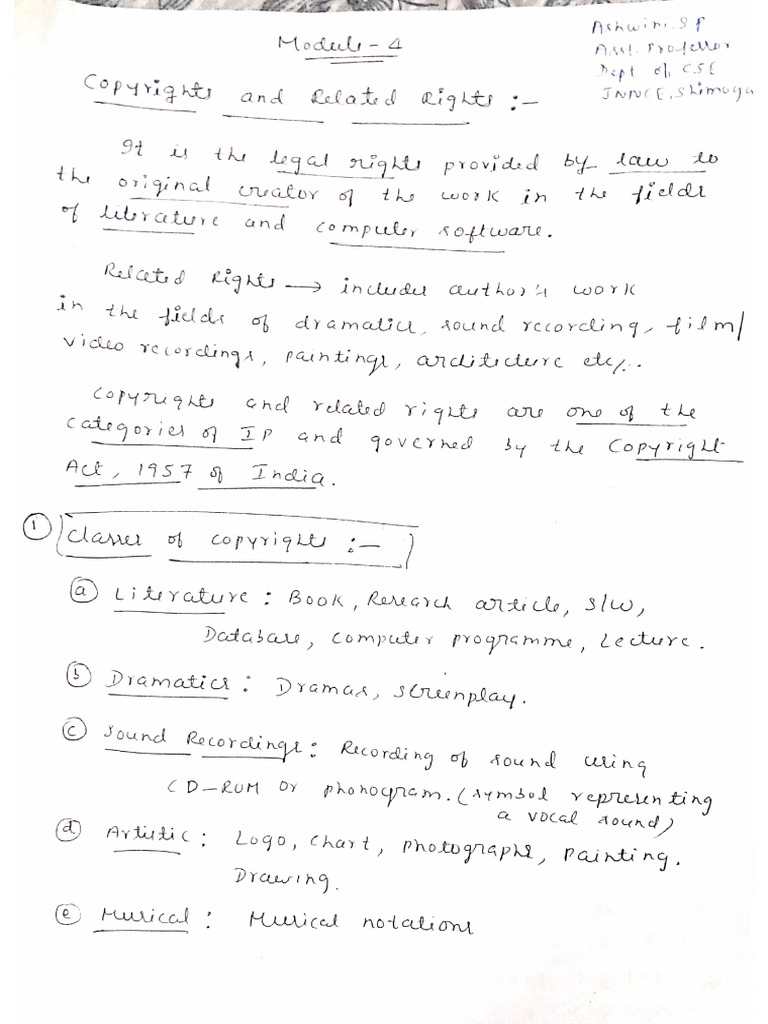 Module - 4
Ashwini. S P
Asst. Professor
Dept of CSE
JNNCE, Shimoga
Copyrights and Related Rights :-
It is the legal rights provided by law to
the original creator of the work in the fields
of literature and computer software.
Related Rights → includes author's work
in the fields of dramatics, sound recording, film/
video recordings, paintings, architecture etc/..
Copyrights and related rights are one of the
categories of IP and governed by the Copyright
Act, 1957 of India.
① Classes of copyrights :-
ⓐ Literature : Book, Research article, S/W,
Database, computer programme, Lecture.
ⓑ Dramatics : Dramas, screenplay.
ⓒ Sound Recordings : Recording of sound using
CD-ROM or phonogram. (symbol representing
a vocal sound)
ⓓ Artistic : Logo, chart, photographs, painting.
Drawing.
ⓔ Musical : Musical notations